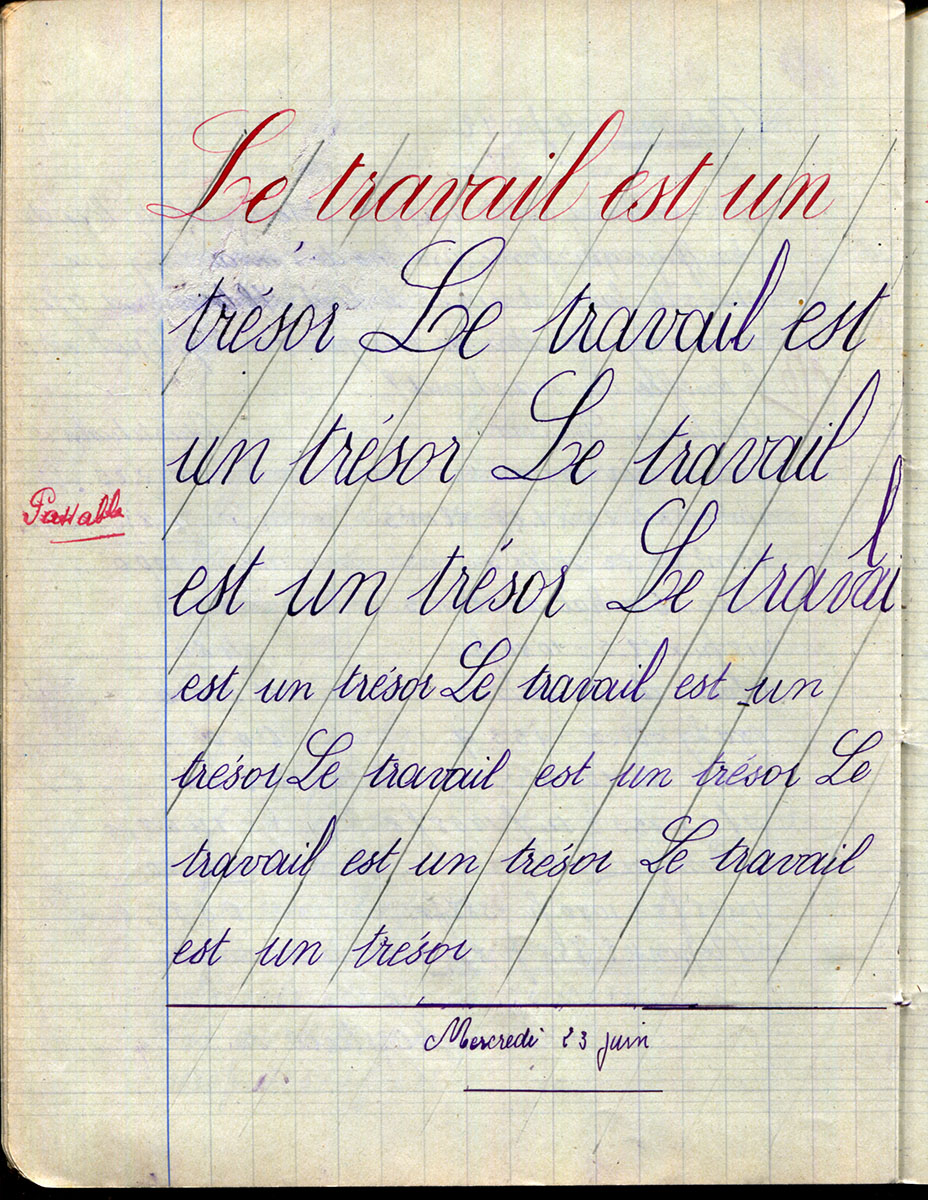 Le travail est un
trésor Le travail est
un trésor Le travail
Passable
est un trésor Le travail
est un trésor Le travail est un
trésor Le travail est un trésor Le
travail est un trésor Le travail
est un trésor
Mercredi 23 juin